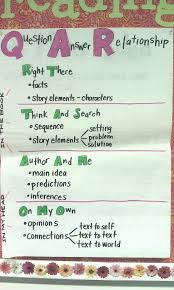 reading
Question Answer Relationship
IN THE BOOK
Right There
• facts
• story elements - characters
Think And Search
• sequence
• story elements
setting
problem
solution
IN MY HEAD
Author And Me
• main idea
• predictions
• inferences
On My Own
• opinions
• connections
text to self
text to text
text to world